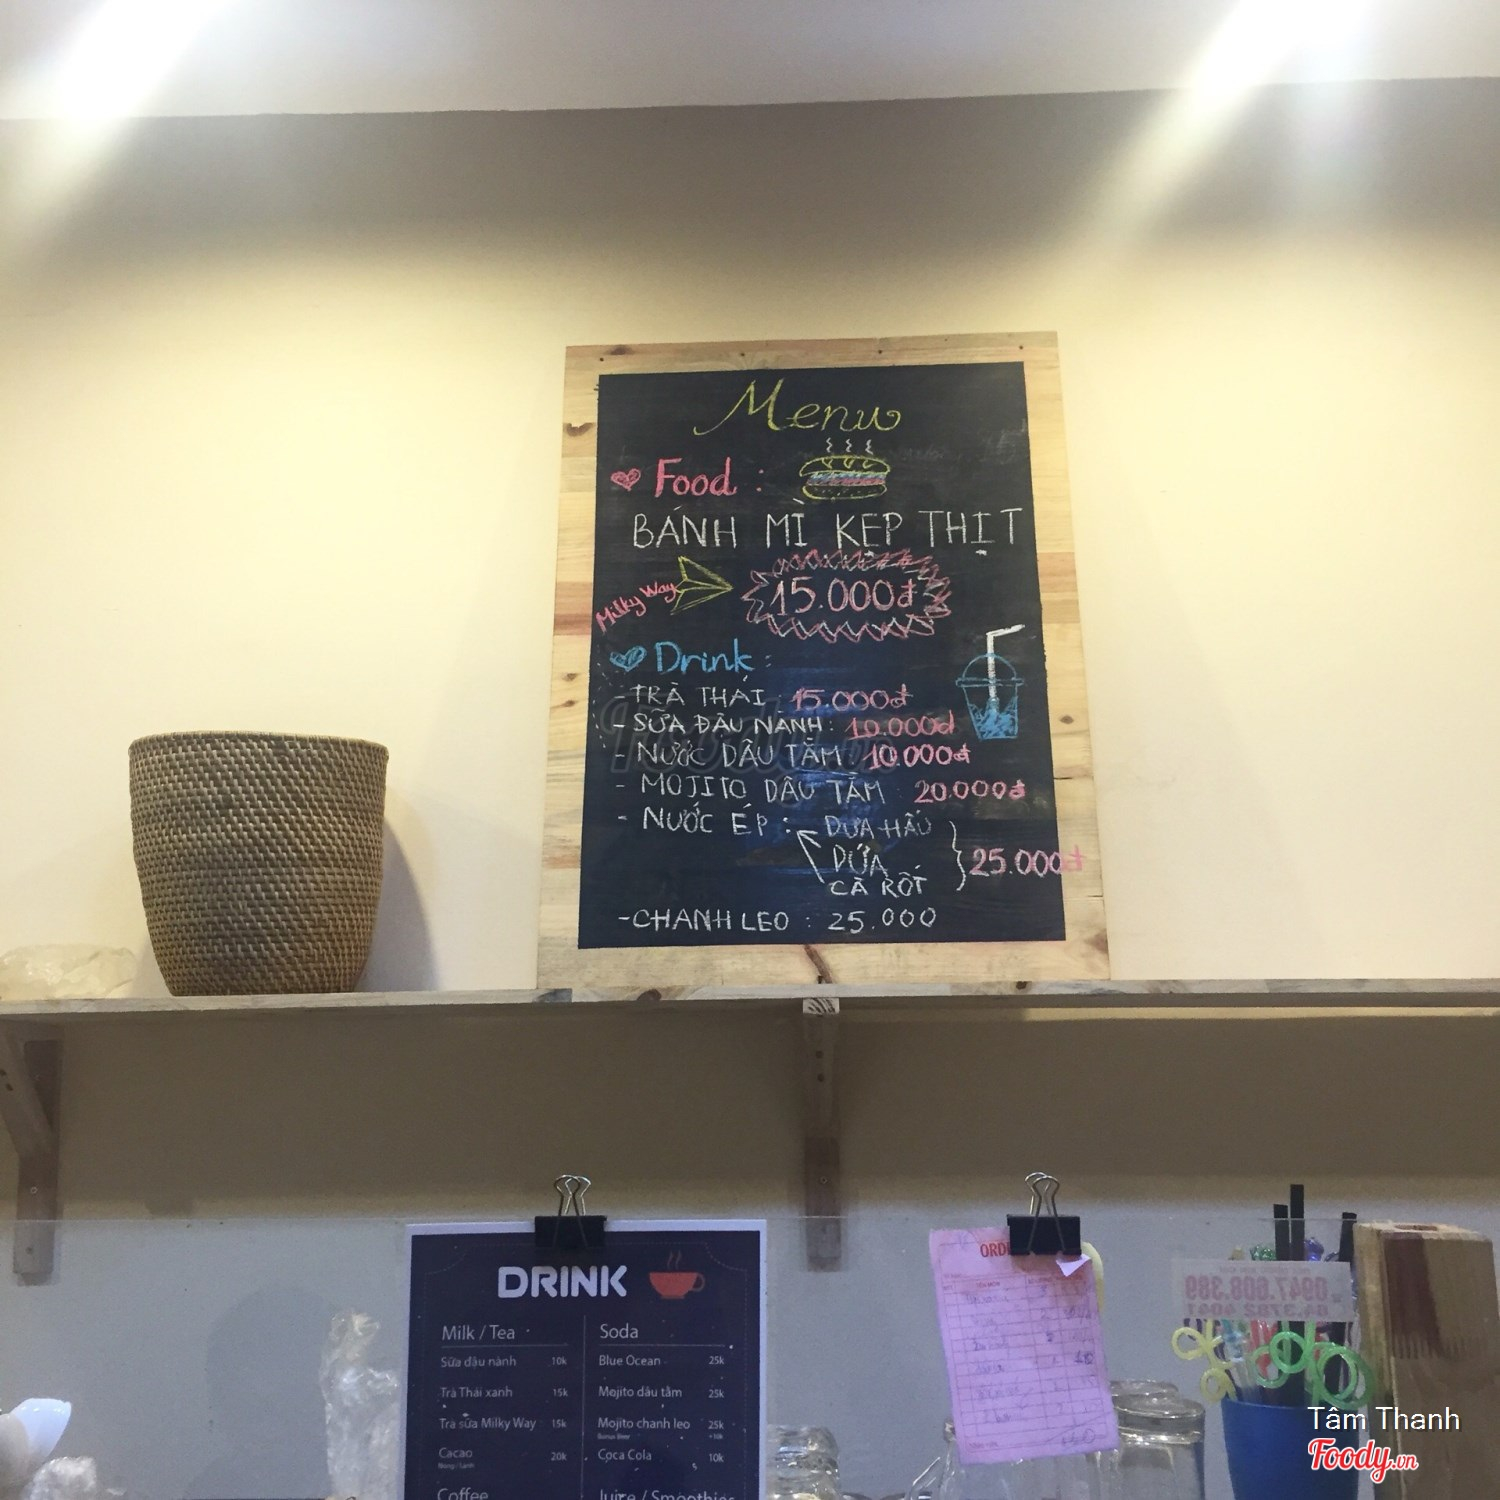 Menu
Food :
BÁNH MÌ KẸP THỊT
Milky Way
15.000đ
Drink :
- TRÀ THÁI : 15.000đ
- SỮA ĐẬU NÀNH : 10.000đ
- NƯỚC DÂU TẰM 10.000đ
- MOJITO DÂU TẰM : 20.000đ
- NƯỚC ÉP : DƯA HẤU
DỨA
CÀ RỐT
25.000đ
- CHANH LEO : 25.000
DRINK
Milk / Tea
Sữa đậu nành 10k
Trà Thái xanh 15k
Trà sữa Milky Way 15k
Cacao 20k
Nóng / Lạnh
Coffee
Soda
Blue Ocean 25k
Mojito dâu tằm 25k
Mojito chanh leo 25k
Bonus Beer +10k
Coca Cola 10k
Juice / Smoothies
0947.608.389
Tâm Thanh
Foody.vn